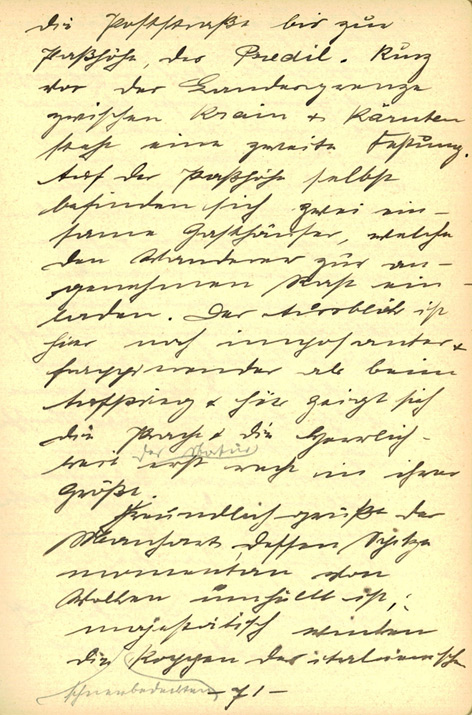 die Poststraße bis zur
Paßhöhe, des Predil. Kurz
vor der Landesgrenze
zwischen Krain + Kärnten
steht eine zweite Festung.
Auf der Paßhöhe selbst
befinden sich zwei ein-
same Gasthäuser, welche
den Wanderer zur an-
genehmen Rast ein-
laden. Der Ausblick ist
hier noch imposanter +
frappierender als beim
Aufstieg + hier zeigt sich
die Pracht + die Herrlich-
der Natur
keit erst recht in ihrer
Größe.
Freundlich grüßt der
Manhart, dessen Spitze
momentan von
Wolken umhüllt ist,;
majestätisch winken
die Koppen des italienische
schneebedeckten
- 71 -